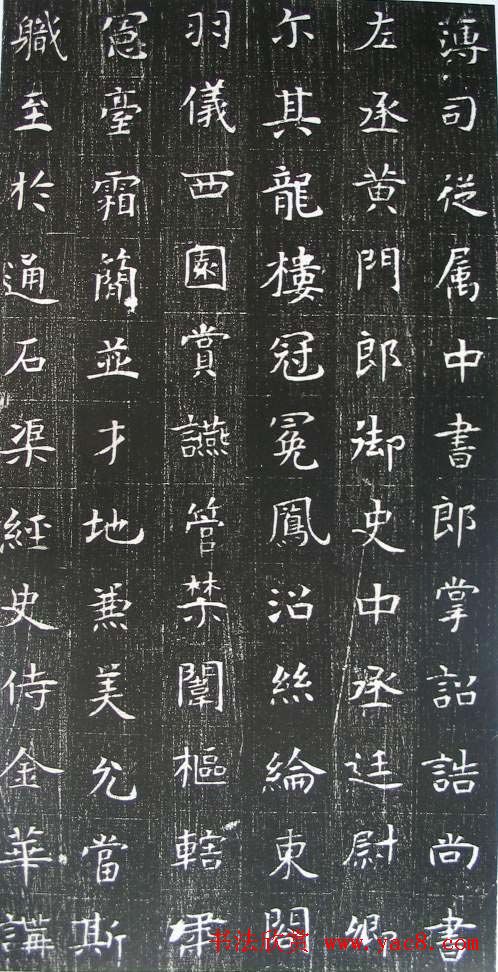 薄司從属中書郎掌詔誥尚書
左丞黄門郎御史中丞廷尉卿
尓其龍樓冠冕鳳沼絲綸東閣
羽儀西園賞讌管禁闈樞轄
憲臺霜簡並才地兼美允當斯
職至於通石渠經史侍金華講
书法欣赏 www.yac8.com